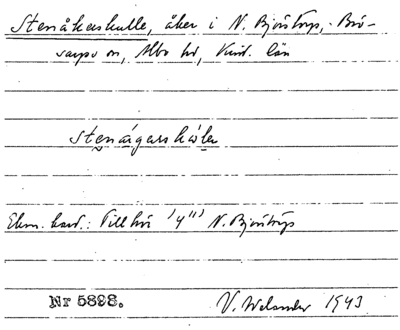 Stenåkerskulle, åker i N. Björstorp, Brö-
sarps sn, Albo hd, Krist. län
stenågarskåle
Ekon. kart.: Till hör 14" N. Björstorp
Nr 5898. V. Welander 1943